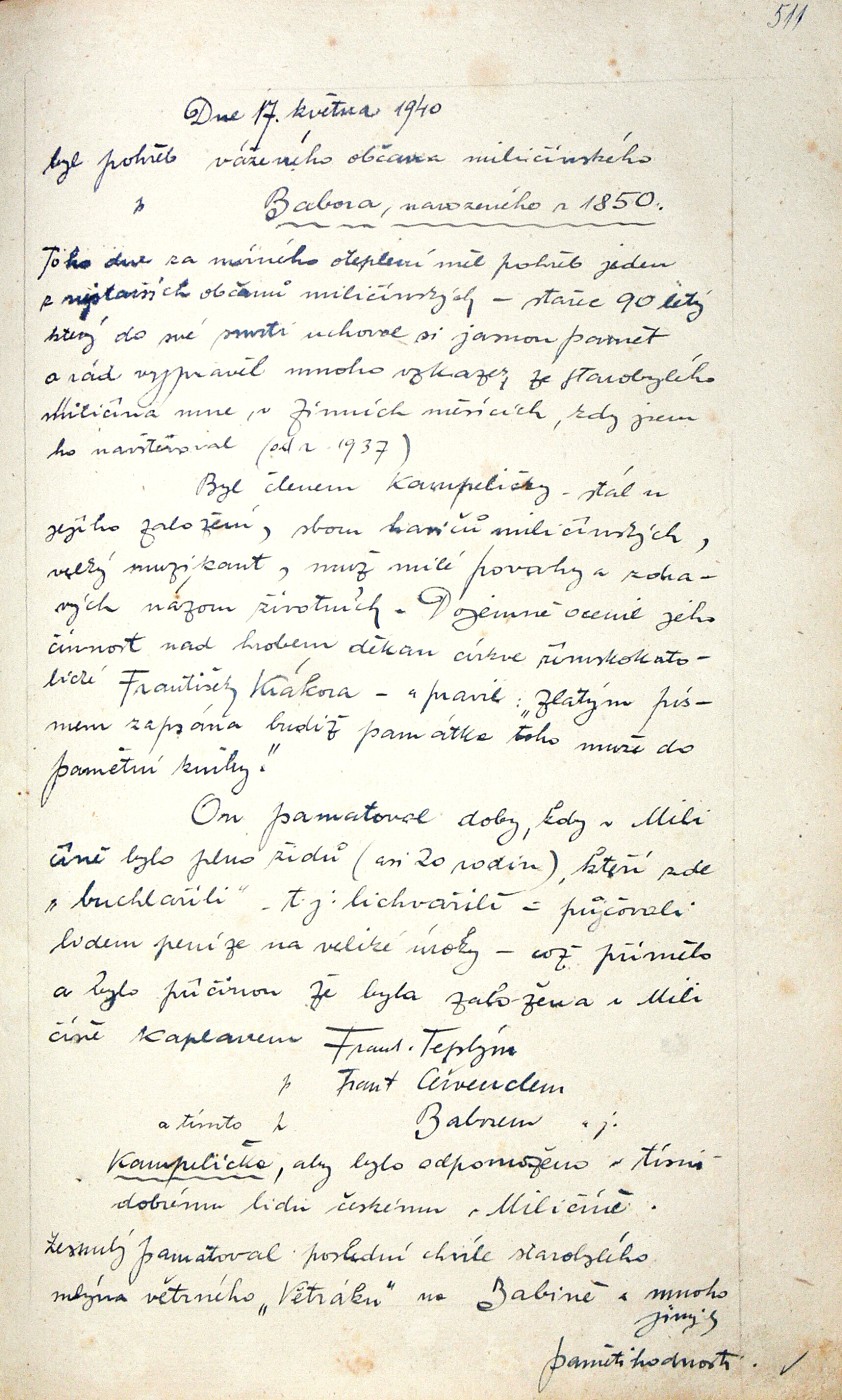 511
Dne 17. května 1940
byl pohřeb váženého občana miličínského
p Babora, narozeného r 1850.
Toho dne za mírného oteplení měl pohřeb jeden
z nejstarších občanů miličínských – stařec 90 letý
který do své smrti uchoval si jasnou paměť
a rád vyprávěl mnoho vzkazez ze starobylého
Miličína mne, v zimních měsících, kdy jsem
ho navštěvoval (od r. 1937)
Byl členem Kampeličky – stál u
jejího založení, sboru hasičů miličínských,
velký muzikant, muž milé povahy a zdra-
vých názorů životních – Dojemně ocenil jeho
činnost nad hrobem děkan církve římskokato-
lické František Krákora – a pravil: „zlatým pís-
mem zapsána budiž památka toho muže do
pamětní knihy."
On pamatoval doby, kdy v Mili
číně bylo plno židů (asi 20 rodin), kteří zde
„buchlařili" – t.j. lichvařili = půjčovali
lidem peníze na veliké úroky – což přimělo
a bylo příčinou že byla založena v Mili
číně kaplanem Frant. Teplým
p Frant Červenclem
a tímto p Baborem a j.
Kampelička, aby bylo odpomoženo v tísni
dobrému lidu českému v Miličíně.
Zesnulý pamatoval poslední chvíle starobylého
mlýna větrného „Větráku" na Babině a mnoho
jiných
pamětihodností.